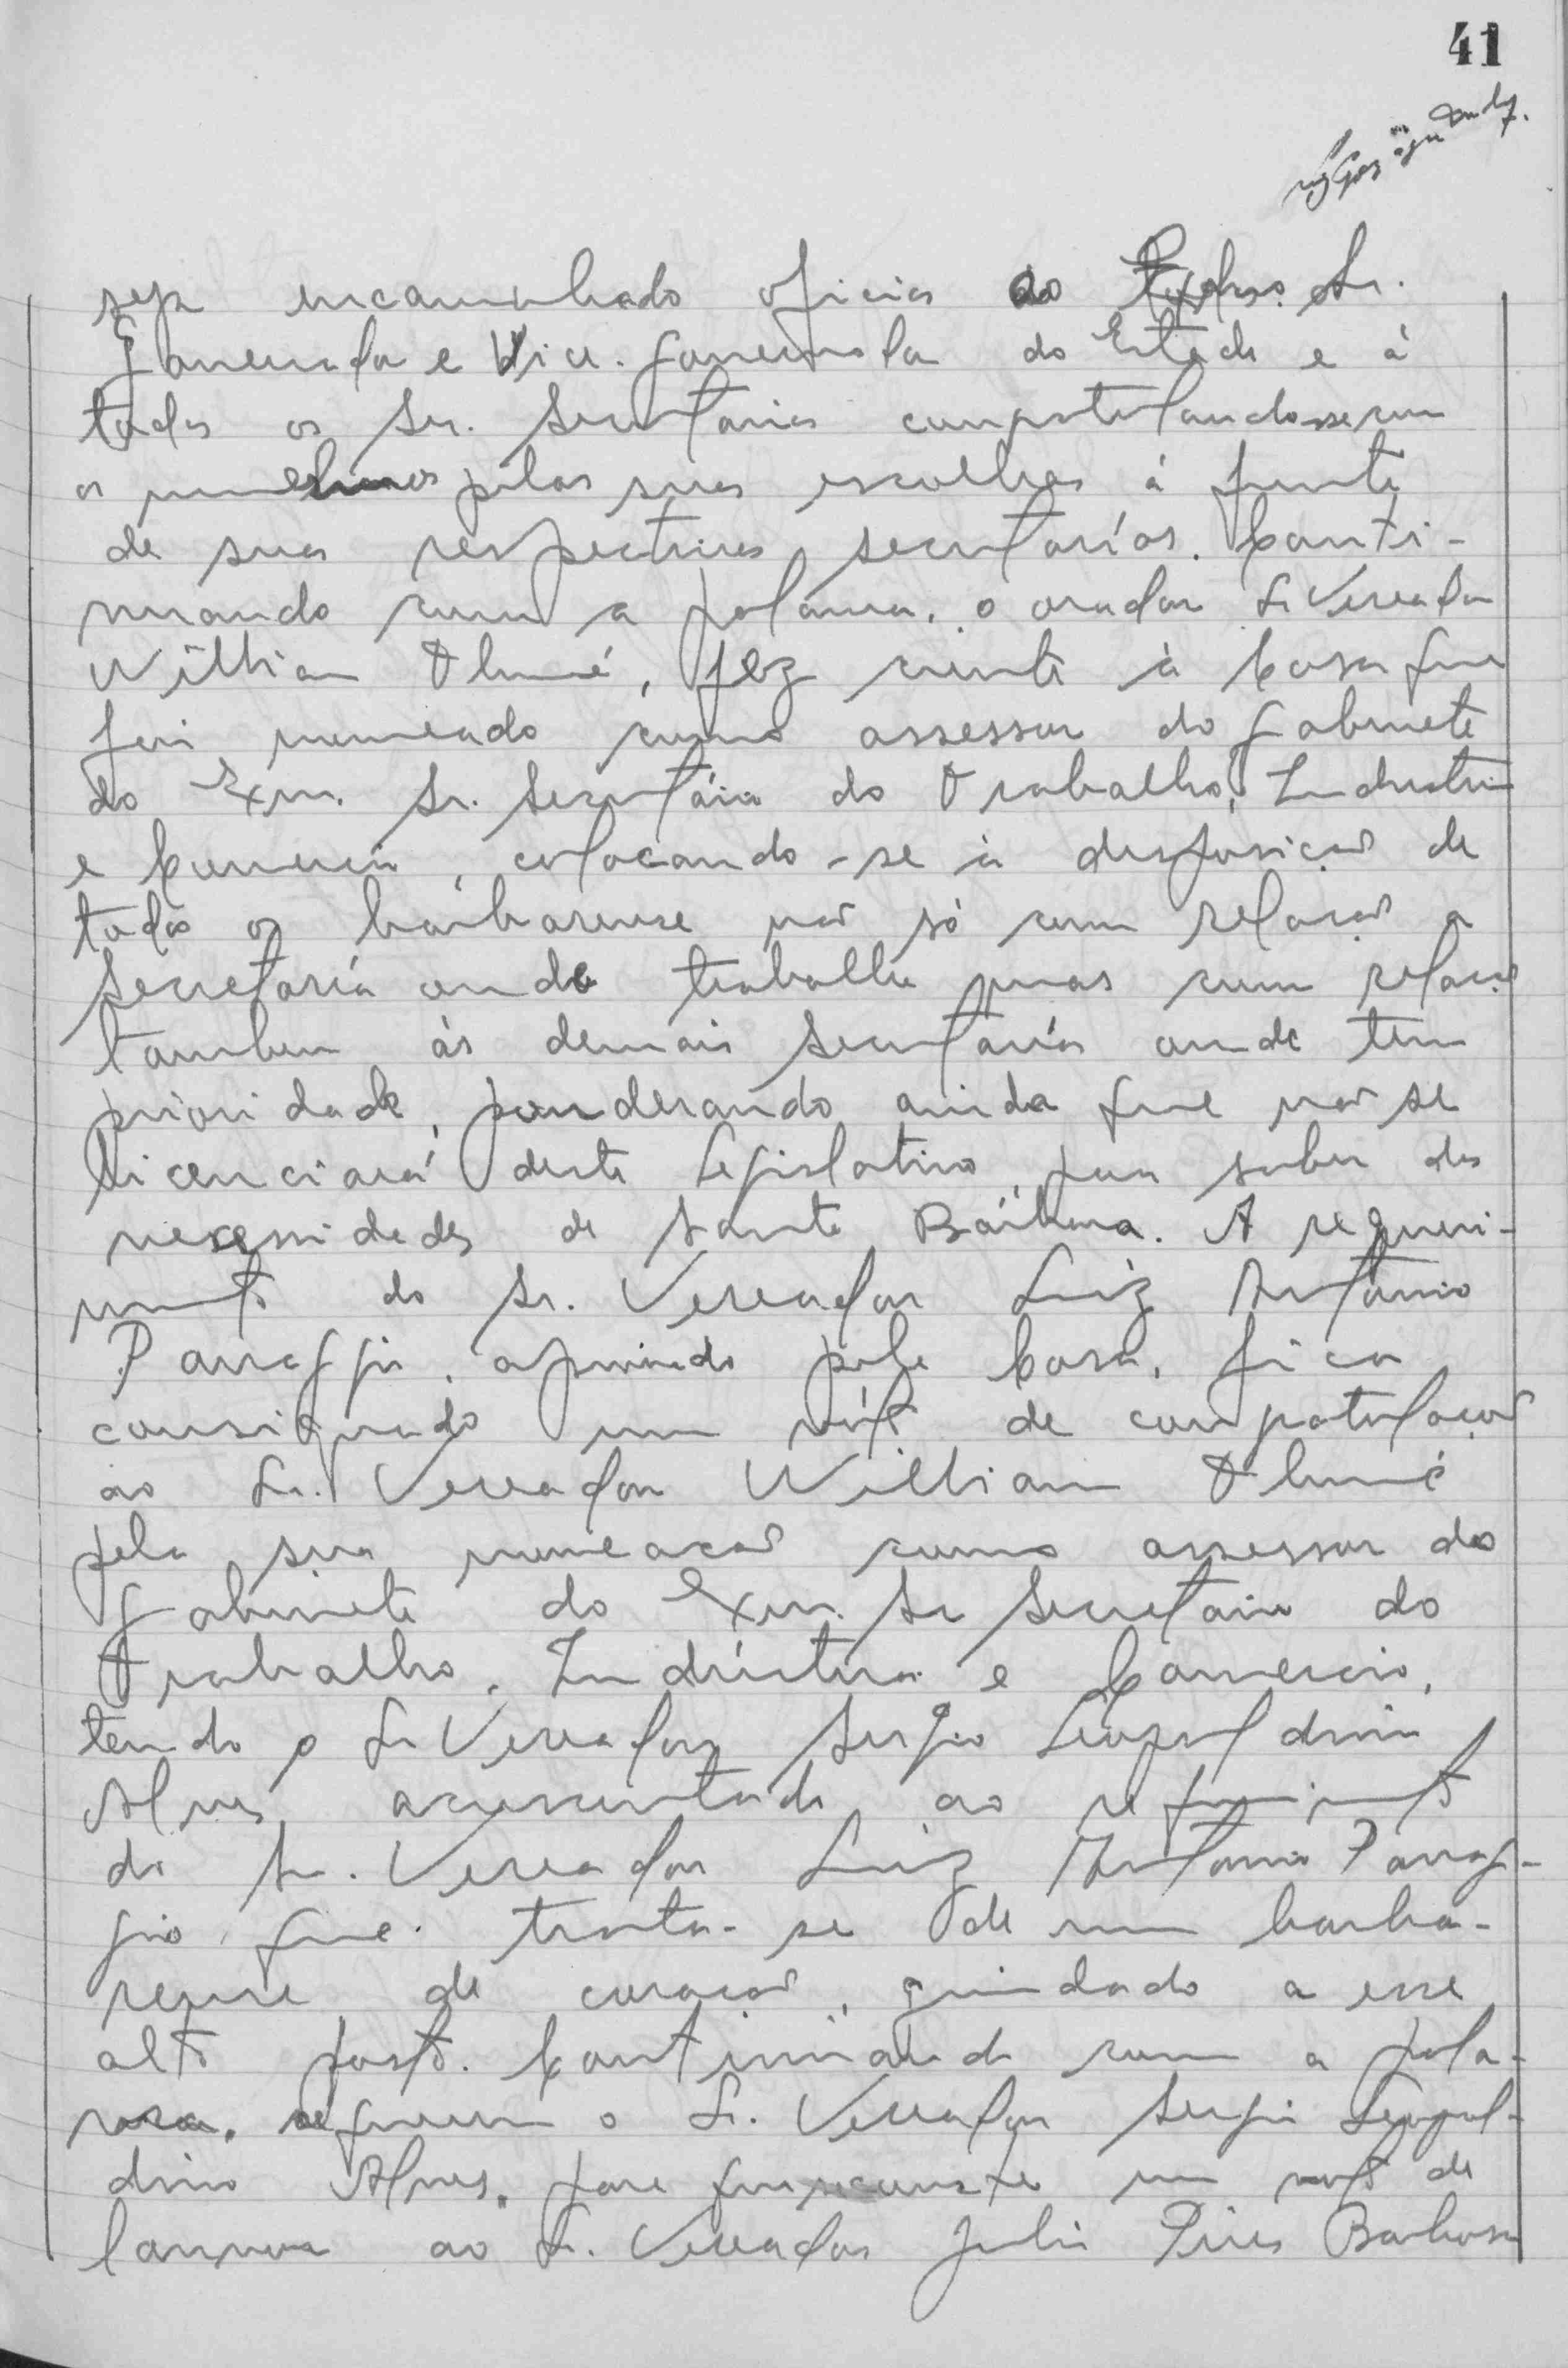 41
seja encaminhado oficios ao Exmo. Sr.
Governador e Vice-Governador do Estado e á
todos os Sr. Secretarios congratulando-se com
os mesmos pelas suas escolhas á frente
de suas respectivas secretarías. Conti-
nuando com a palavra, o orador Sr Vereador
William Thomé, fez ciente à Casa que
foi nomeado como assessor do Gabinete
do Exm. Sr. Secretário do Trabalho, Industria
e Comercio, colocando-se à disposição de
todos os barbarense não só com relação a
Secretaría onde trabalha mas com relação
tambem às demais Secretarías onde tem
prioridade, ponderando ainda que não se
licenciará deste Legislativo, para saber das
necessidades de Santa Bárbara. A requeri-
mento do Sr. Vereador Luiz Antonio
Panaggio, aprovado pela Casa, fica
consignado um voto de congratulação
ao Sr. Vereador William Thomé
pela sua nomeação como assessor do
Gabinete do Exm. Sr Secretario do
Trabalho, Indústria e Comercio,
tendo o Sr Vereador Sergio Leopoldino
Alves acrescentado ao requerimento
do Sr. Vereador Luiz Antonio Panag-
gio, que trata-se de um barba-
rense de coração, guindado a esse
alto posto. Continuando com a pala-
vra, requereu o Sr. Vereador Sergio Leopol-
dino Alves, para que um voto de
louvor ao Sr. Vereador Julio Pires Barbosa